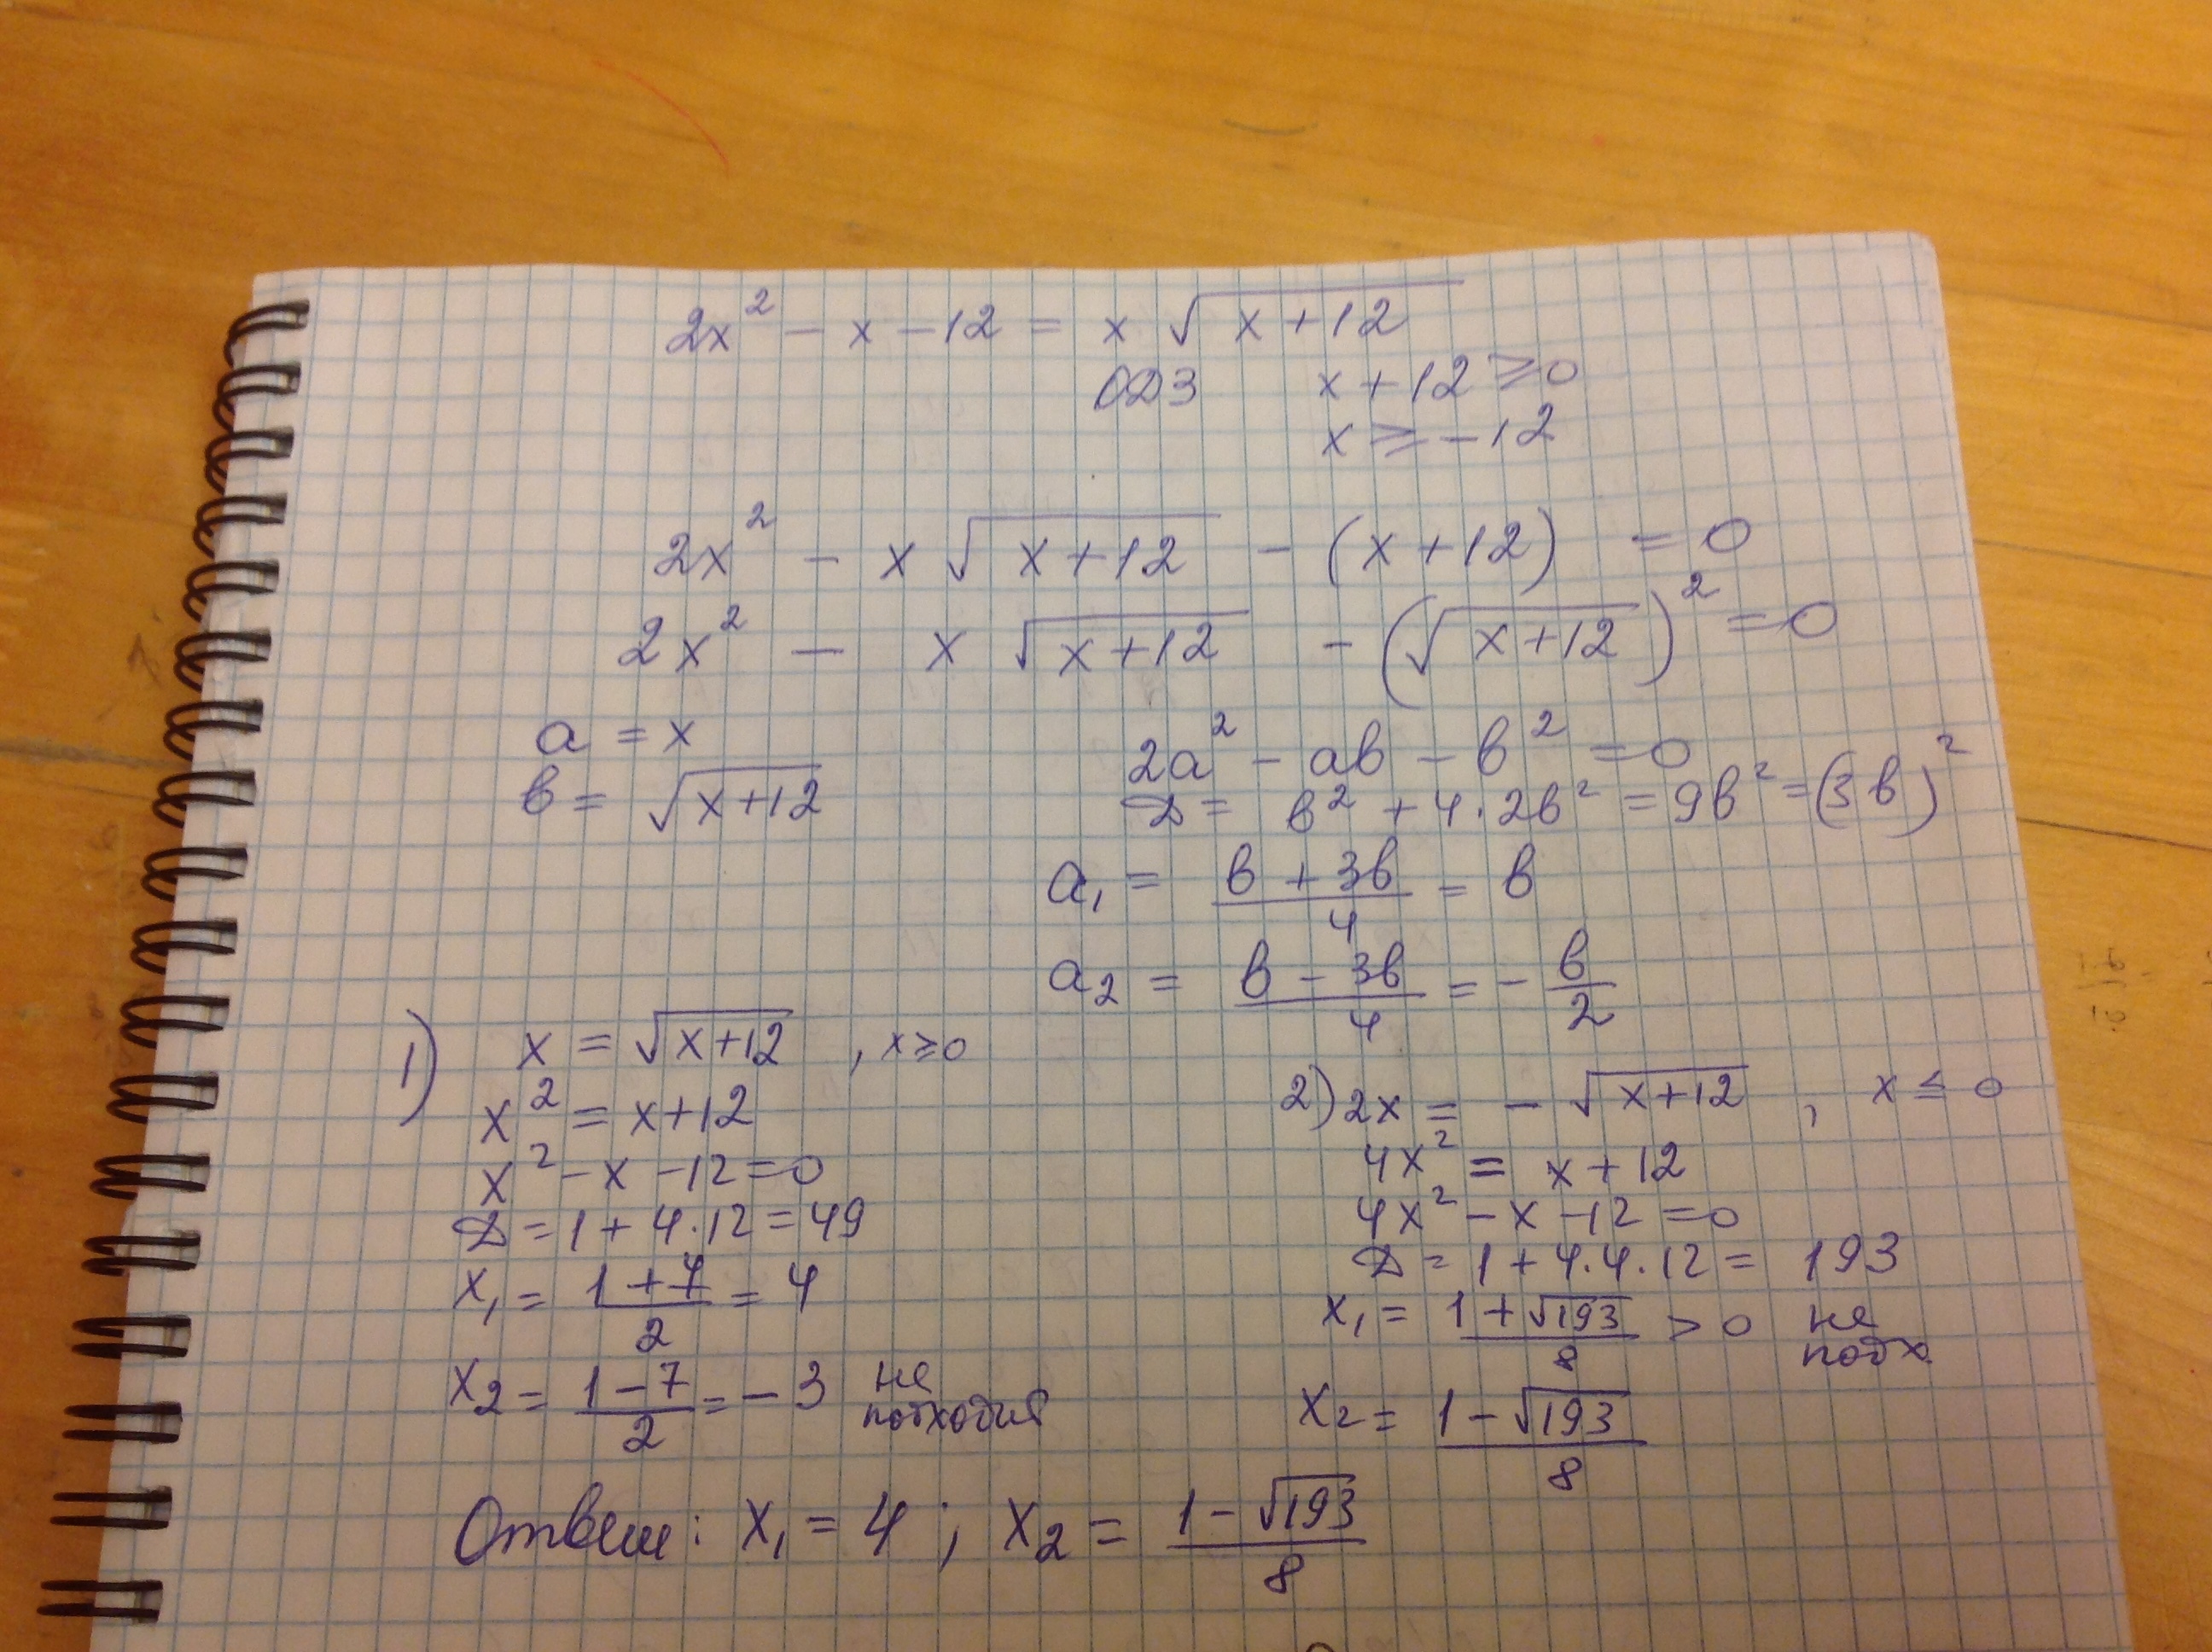 2x² − x − 12 = x √(x+12)
ОДЗ x + 12 ≥ 0
x ≥ −12
2x² − x √(x+12) − (x+12) = 0
2x² − x √(x+12) − (√(x+12))² = 0
a = x
в = √(x+12)
2a² − aв − в² = 0
D = в² + 4·2в² = 9в² = (3в)²
a₁ = (в + 3в)/4 = в
a₂ = (в − 3в)/4 = − в/2
1) x = √(x+12) , x ≥ 0
x² = x+12
x² − x − 12 = 0
D = 1 + 4·12 = 49
x₁ = (1 + 7)/2 = 4
x₂ = (1 − 7)/2 = −3 не подходит
2) 2x = − √(x+12) , x ≤ 0
4x² = x + 12
4x² − x − 12 = 0
D = 1 + 4·4·12 = 193
x₁ = (1 + √193)/8 > 0 не подх.
x₂ = (1 − √193)/8
Ответ: x₁ = 4 ; x₂ = (1 − √193)/8